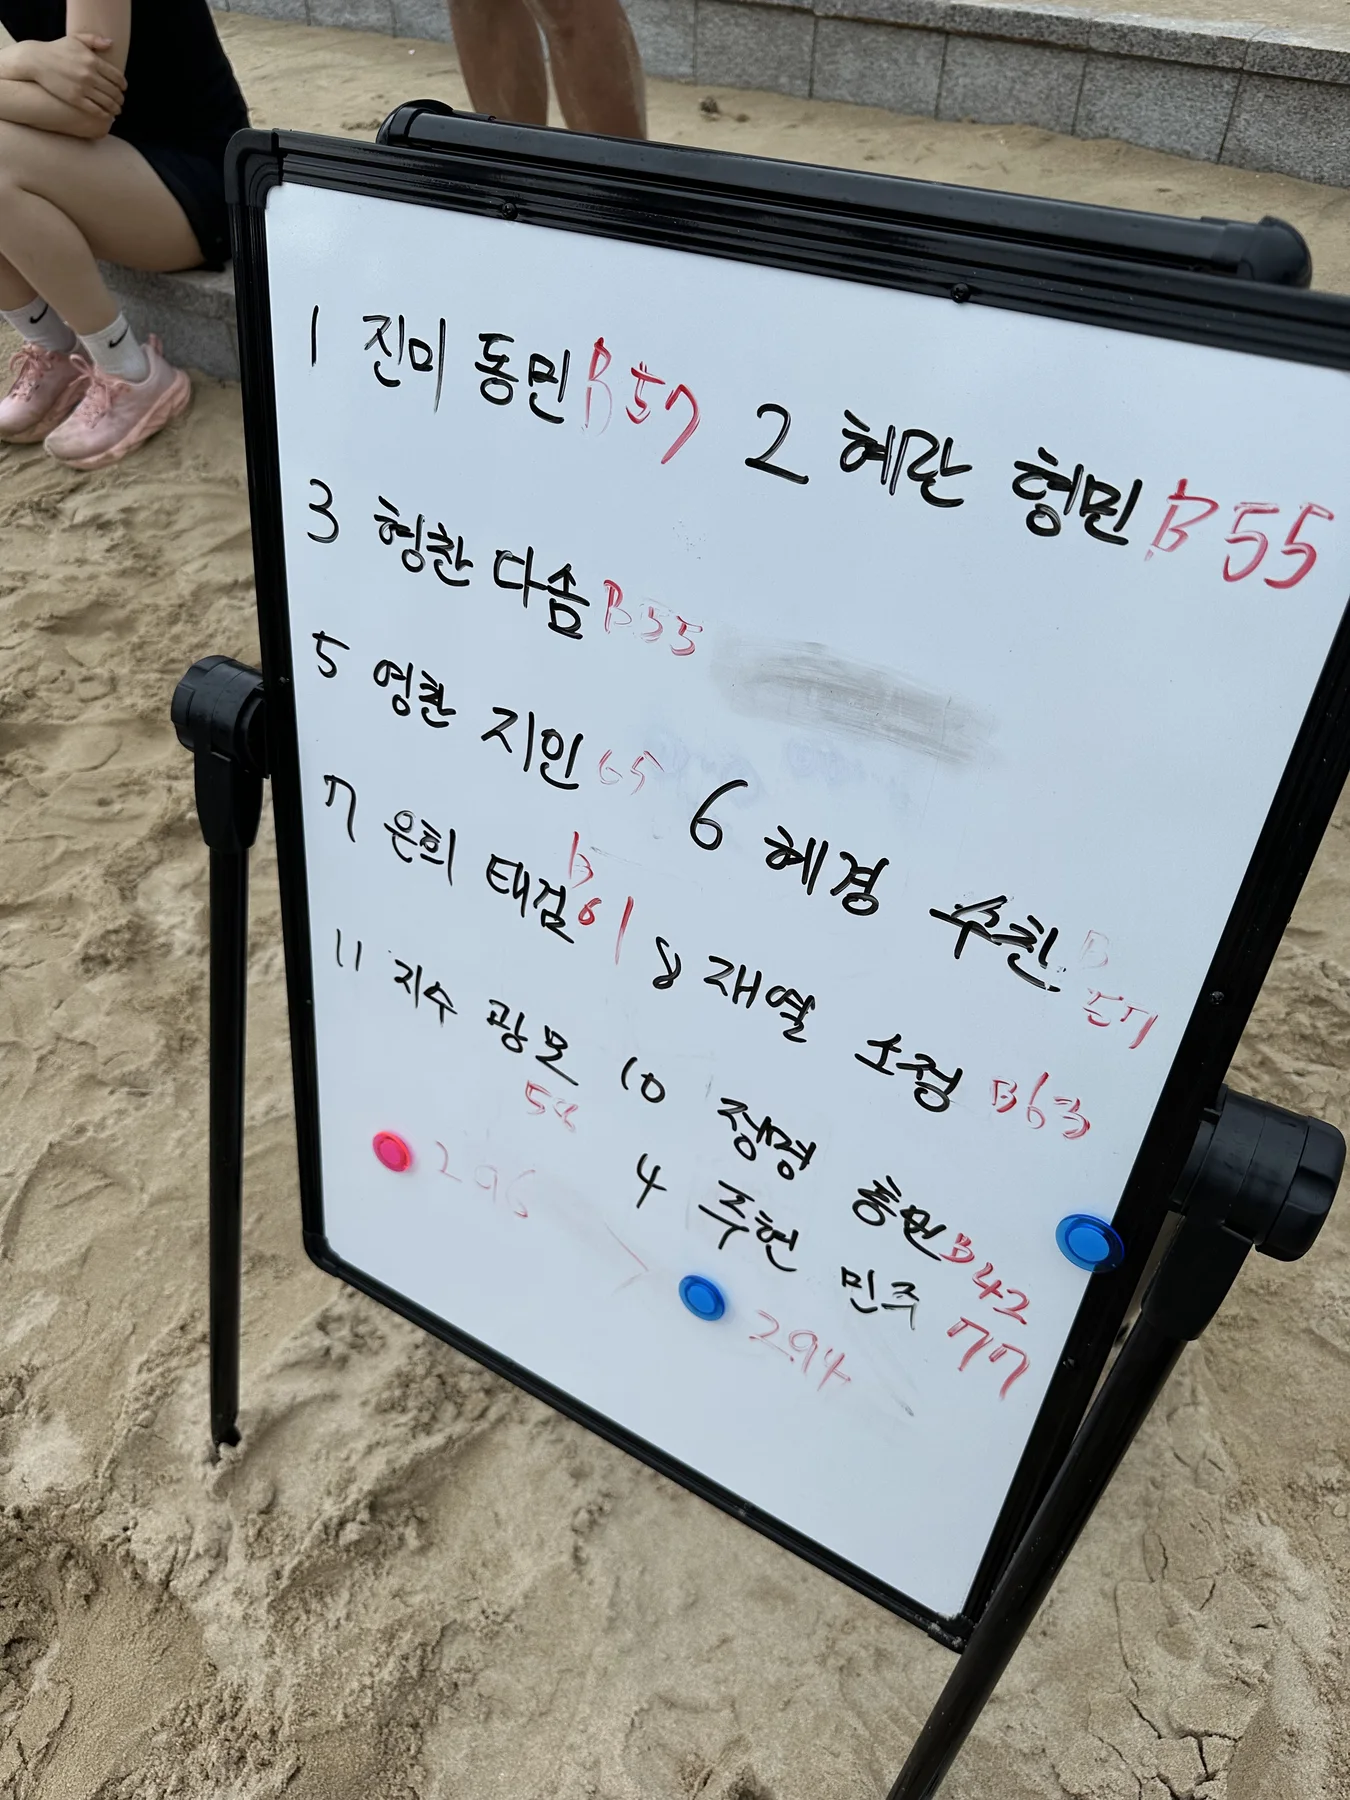 1 진미 동민 B 57
2 혜란 형민 B 55
3 형찬 다솜 B 55
5 영찬 지인 65
6 혜경 수찬 B 57
7 은희 태검 B 61
8 재열 소정 B 63
11 지수 광모
10 정명 홍민 B 42
4 주현 민주 77
296
294